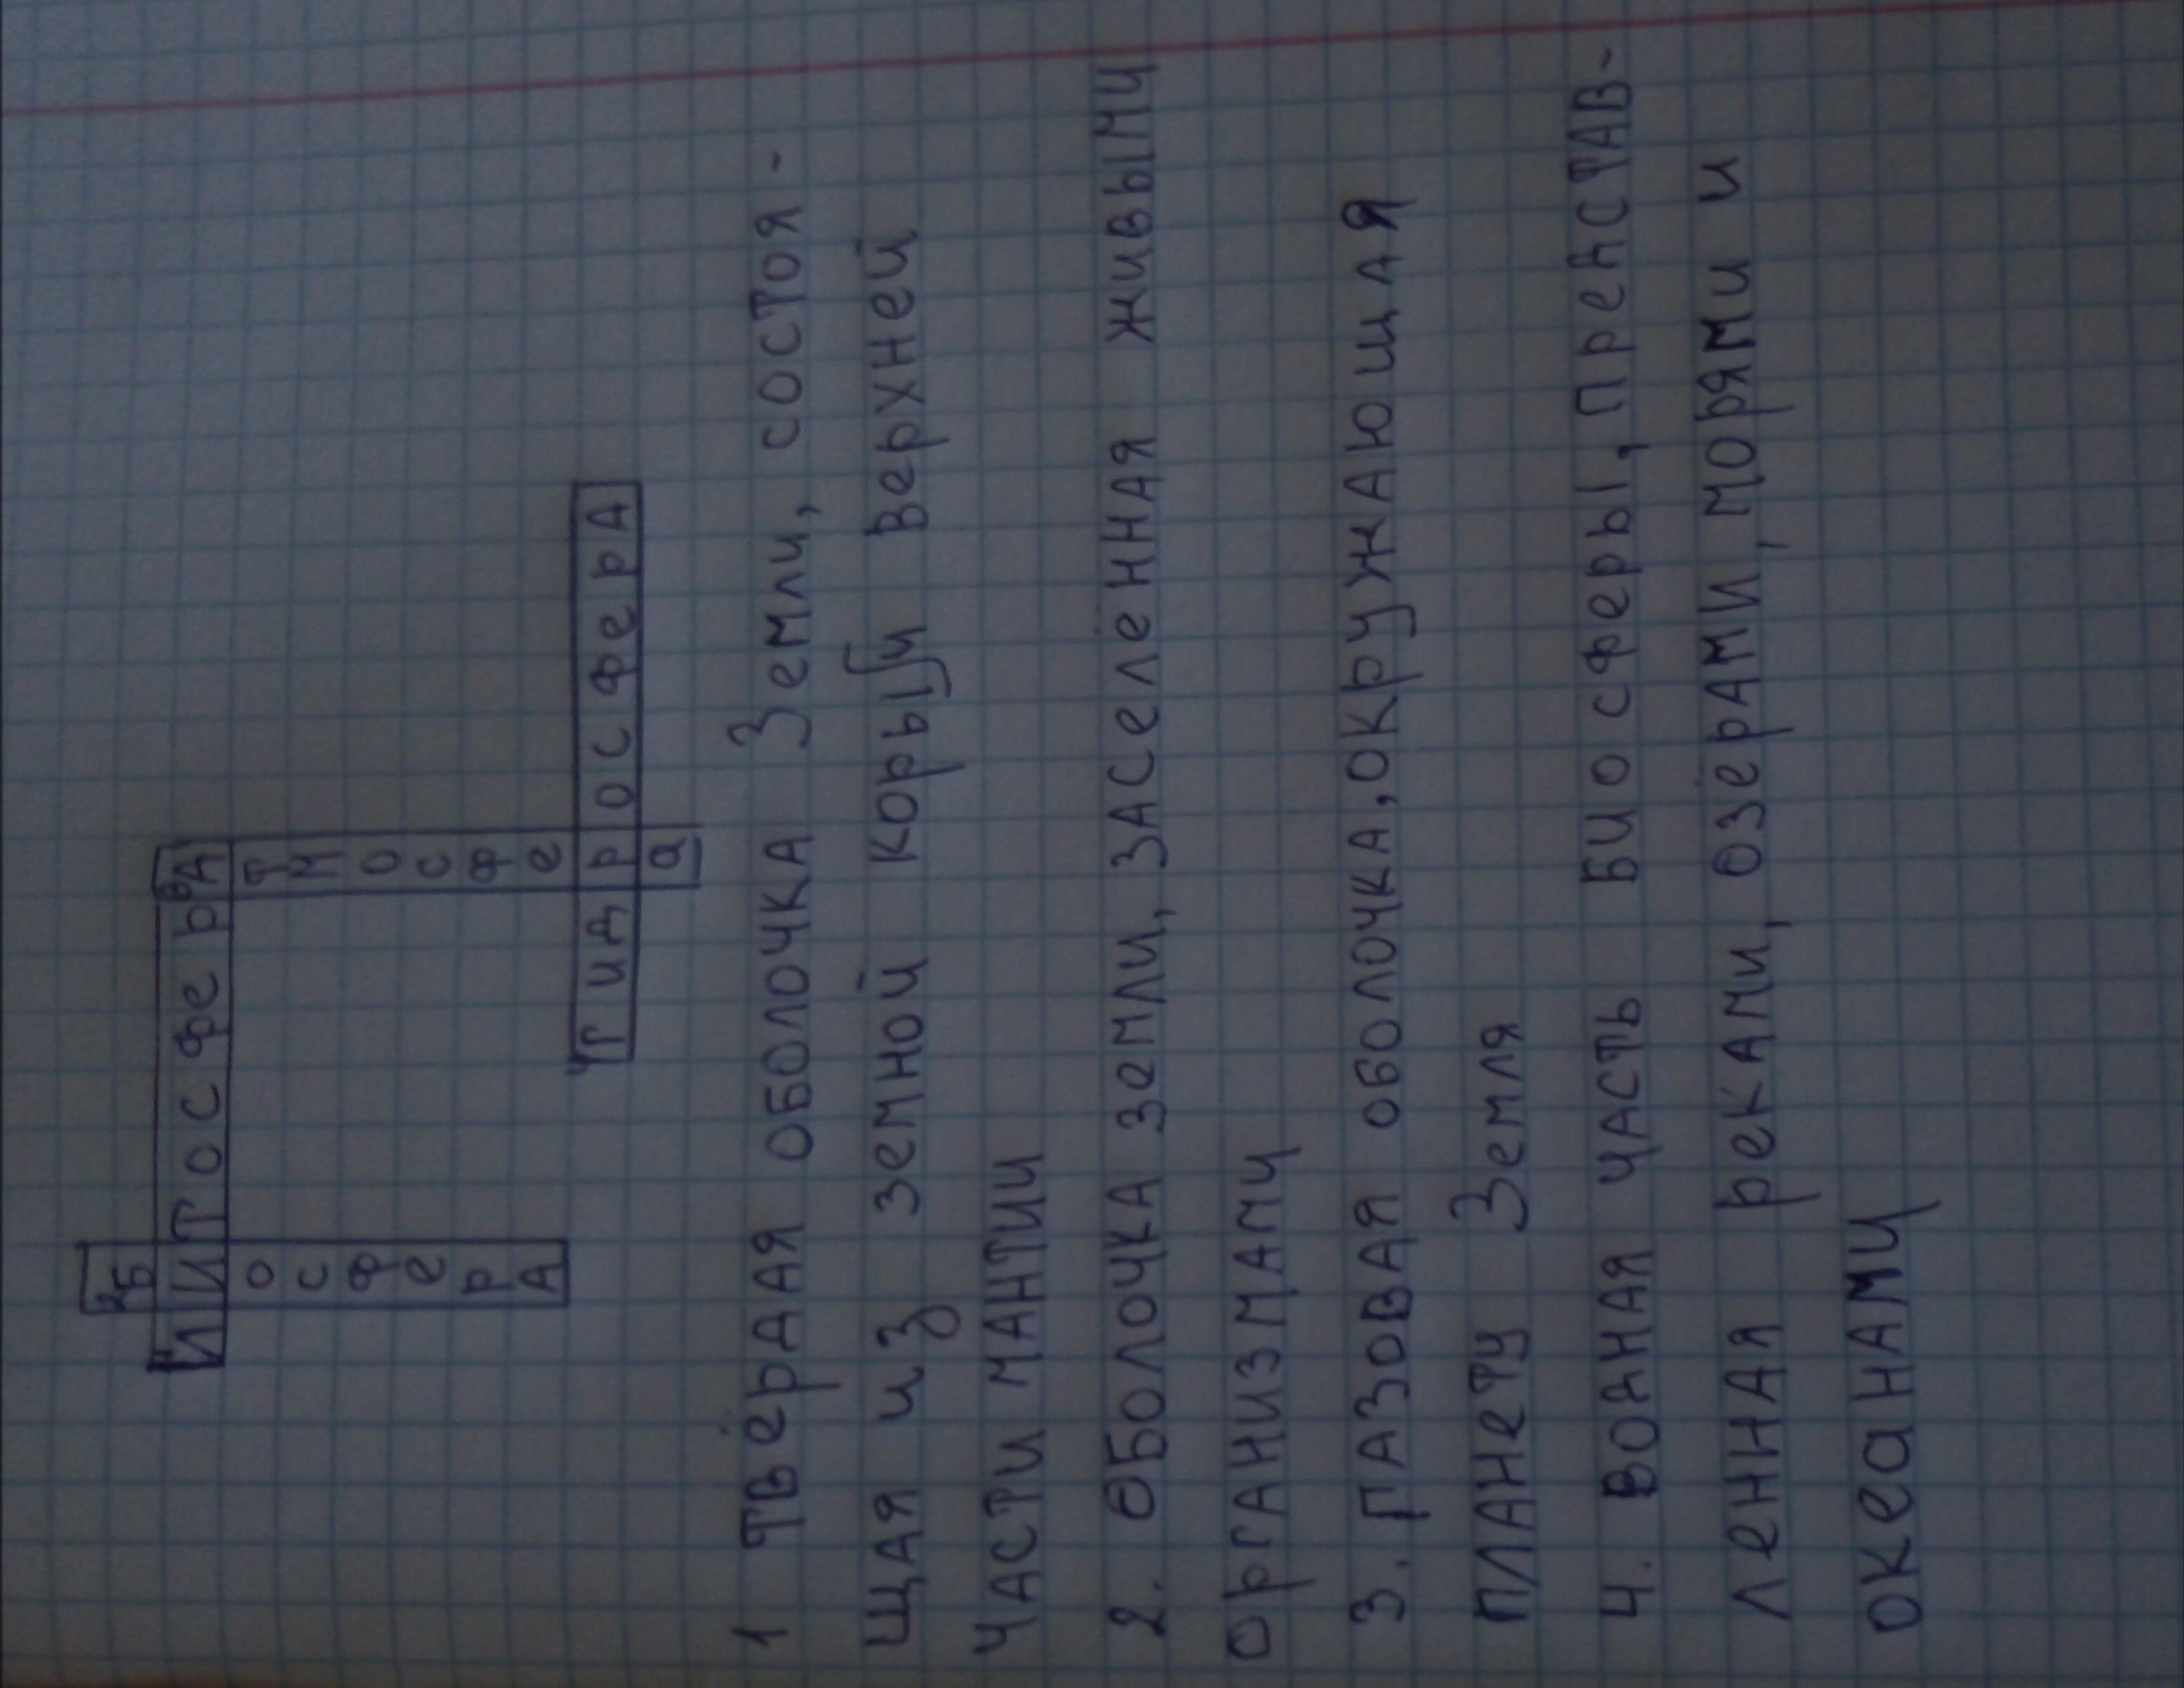 2Б
1ЛИТосферА
3А
о
с
ф
е
р
А
т
м
о
с
ф
е
4ГидросферА
а
1 ТвёрдАЯ оболочкА Земли, состоя-
щАЯ из земной коры и верхней
ЧАсти мАнтии
2. ОболочкА земли, зАселённАя живыми
оргАнизмАми
3. ГАзовАЯ оболочкА, окружАющАЯ
плАнету Земля
4. воднАя чАсть биосферы, предстАв-
леннАя рекАми, озёрАми, морями и
океАнАми